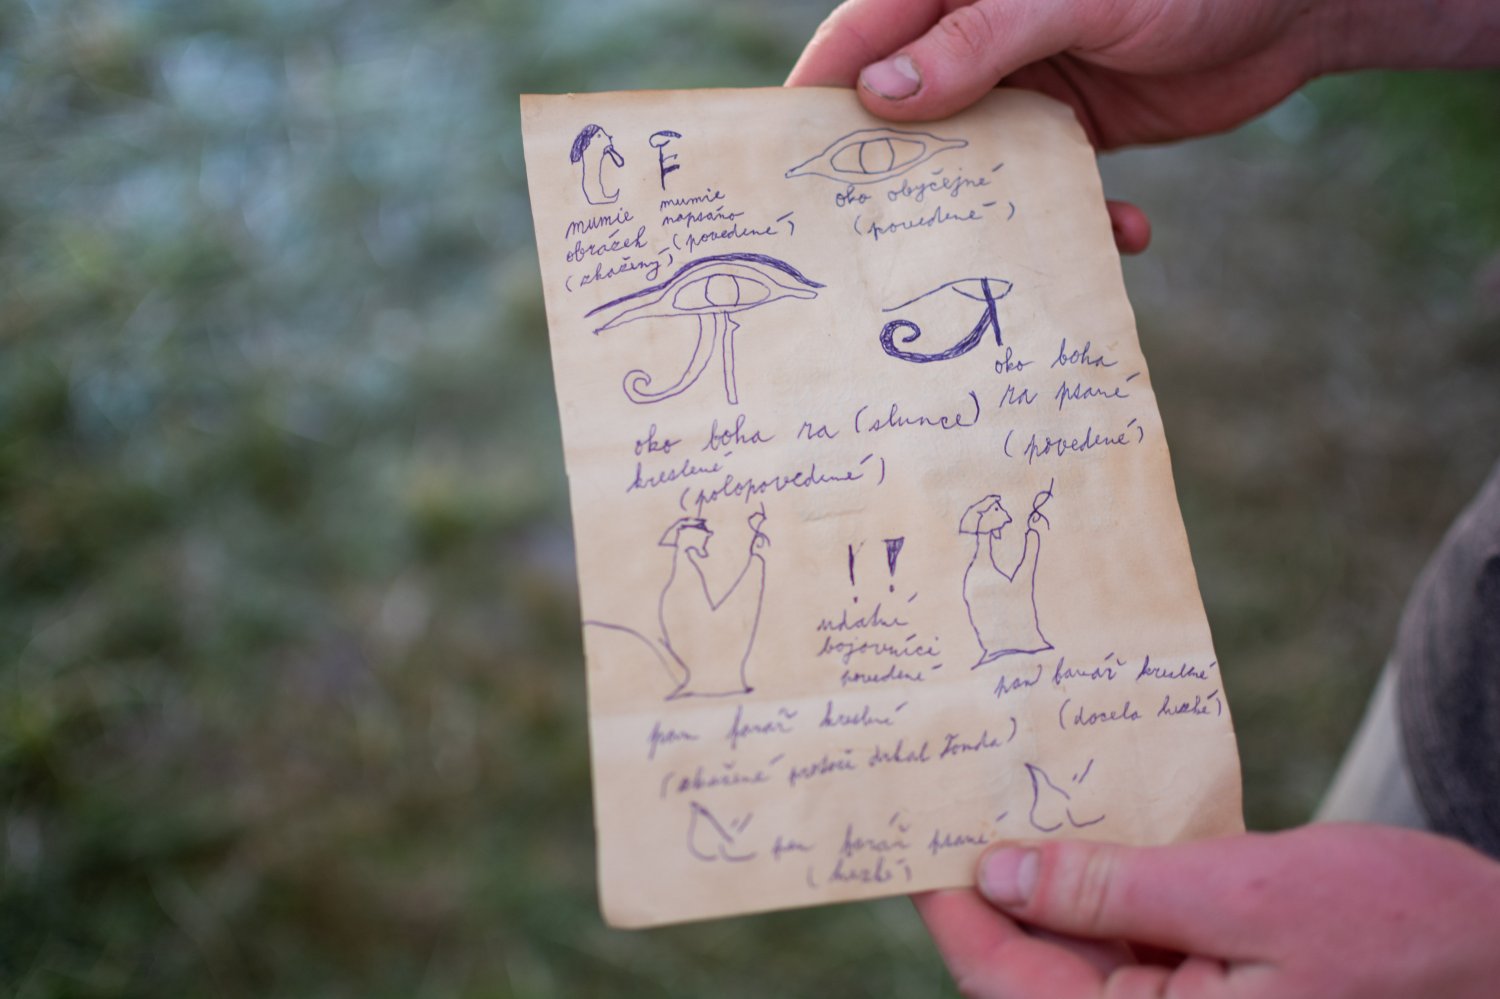 mumie
obrázek
(zkažený)
mumie
napsáno
(povedené)
oko obyčejné
(povedené)
oko boha
ra psané
(povedené)
oko boha ra (slunce)
kreslené
(polopovedené)
udatní
bojovníci
povedené
pan farář kreslené
(docela hezké)
pan farář kreslené
(zkažené protože Tonda)
pan farář psané
(hezké)